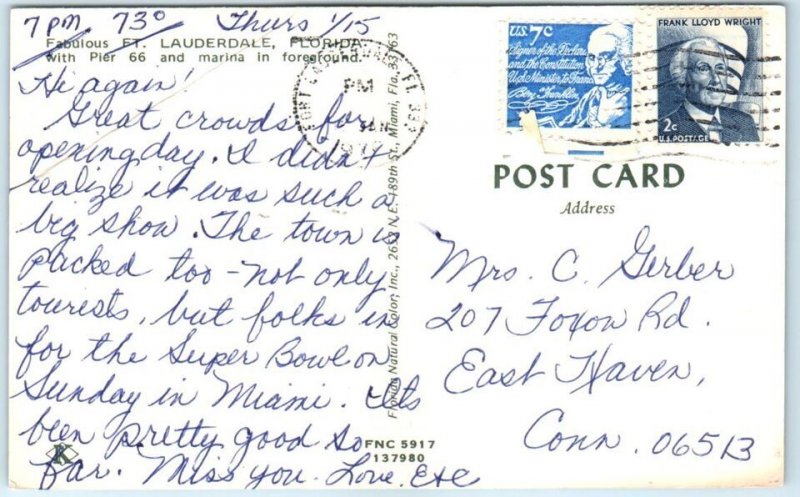 7 PM 73° Thurs 1/15
Fabulous FT. LAUDERDALE, FLORIDA
with Pier 66 and marina in foreground.
Hi again!
Great crowds for
opening day. I didn't
realize it was such a
big show. The town is
packed too - not only
tourists, but folks in
for the Super Bowl on
Sunday in Miami. It's
been pretty good so
far. Miss you. Love, E+C
K
FNC 5917
137980
Florida Natural Color, Inc., 2653 N.E. 189th St., Miami, Fla. 33163
PM
U.S. 7c
Signer of the Declaration
and the Constitution
U.S. Minister to France
Benj. Franklin
FRANK LLOYD WRIGHT
2c
U.S. POSTAGE
POST CARD
Address
Mrs. C. Gerber
207 Foxon Rd.
East Haven,
Conn. 06513